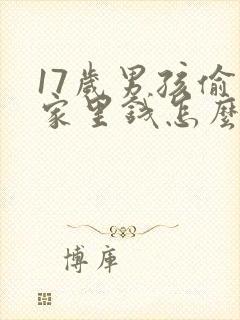 17歲男孩偷
家里錢怎麽
博庫